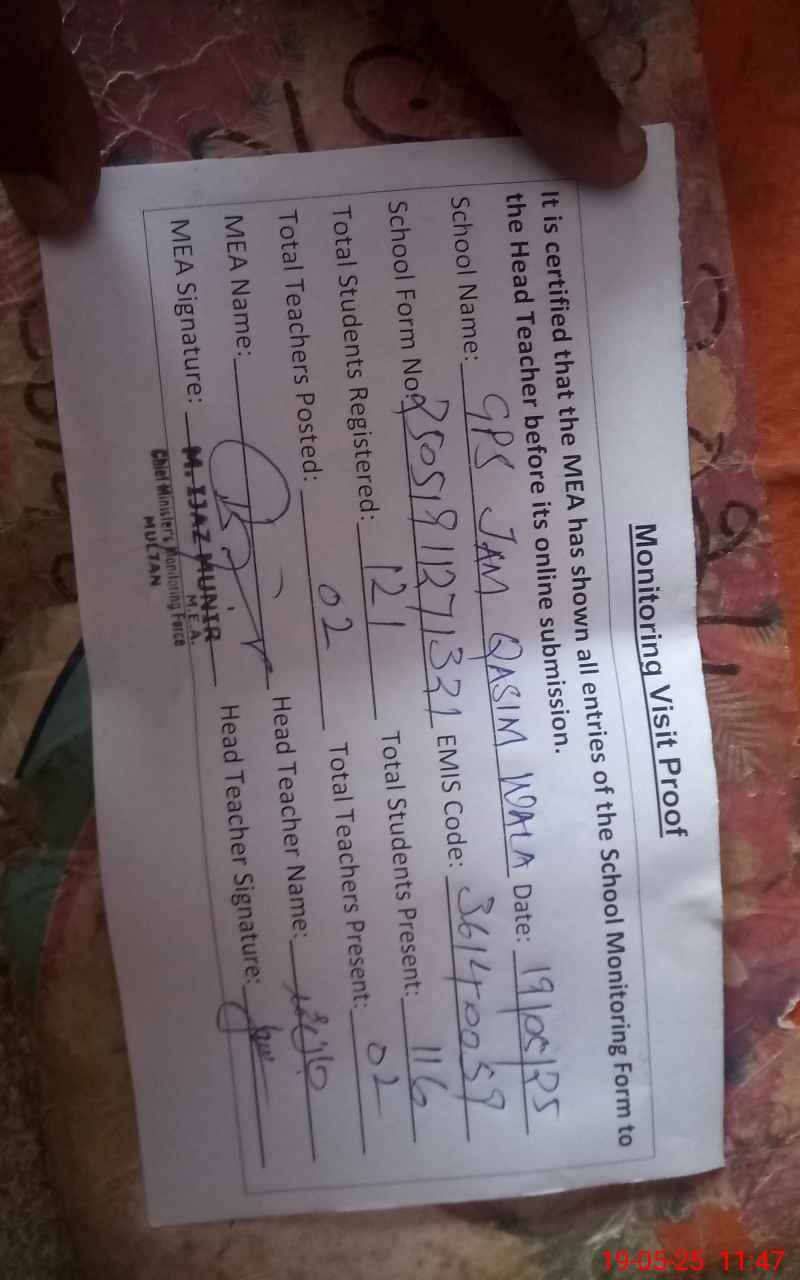 Monitoring Visit Proof
It is certified that the MEA has shown all entries of the School Monitoring Form to
the Head Teacher before its online submission.
School Name: GPS JAM QASIM WALA Date: 19/05/25
School Form No: EMIS Code:
Total Students Registered: 121 Total Students Present: 116
Total Teachers Posted: 02 Total Teachers Present: 02
MEA Name: Head Teacher Name:
MEA Signature: Head Teacher Signature:
M. IJAZ MUNIR
M.E.A.
Chief Minister's Monitoring Force
MULTAN
19-05-25 11:47